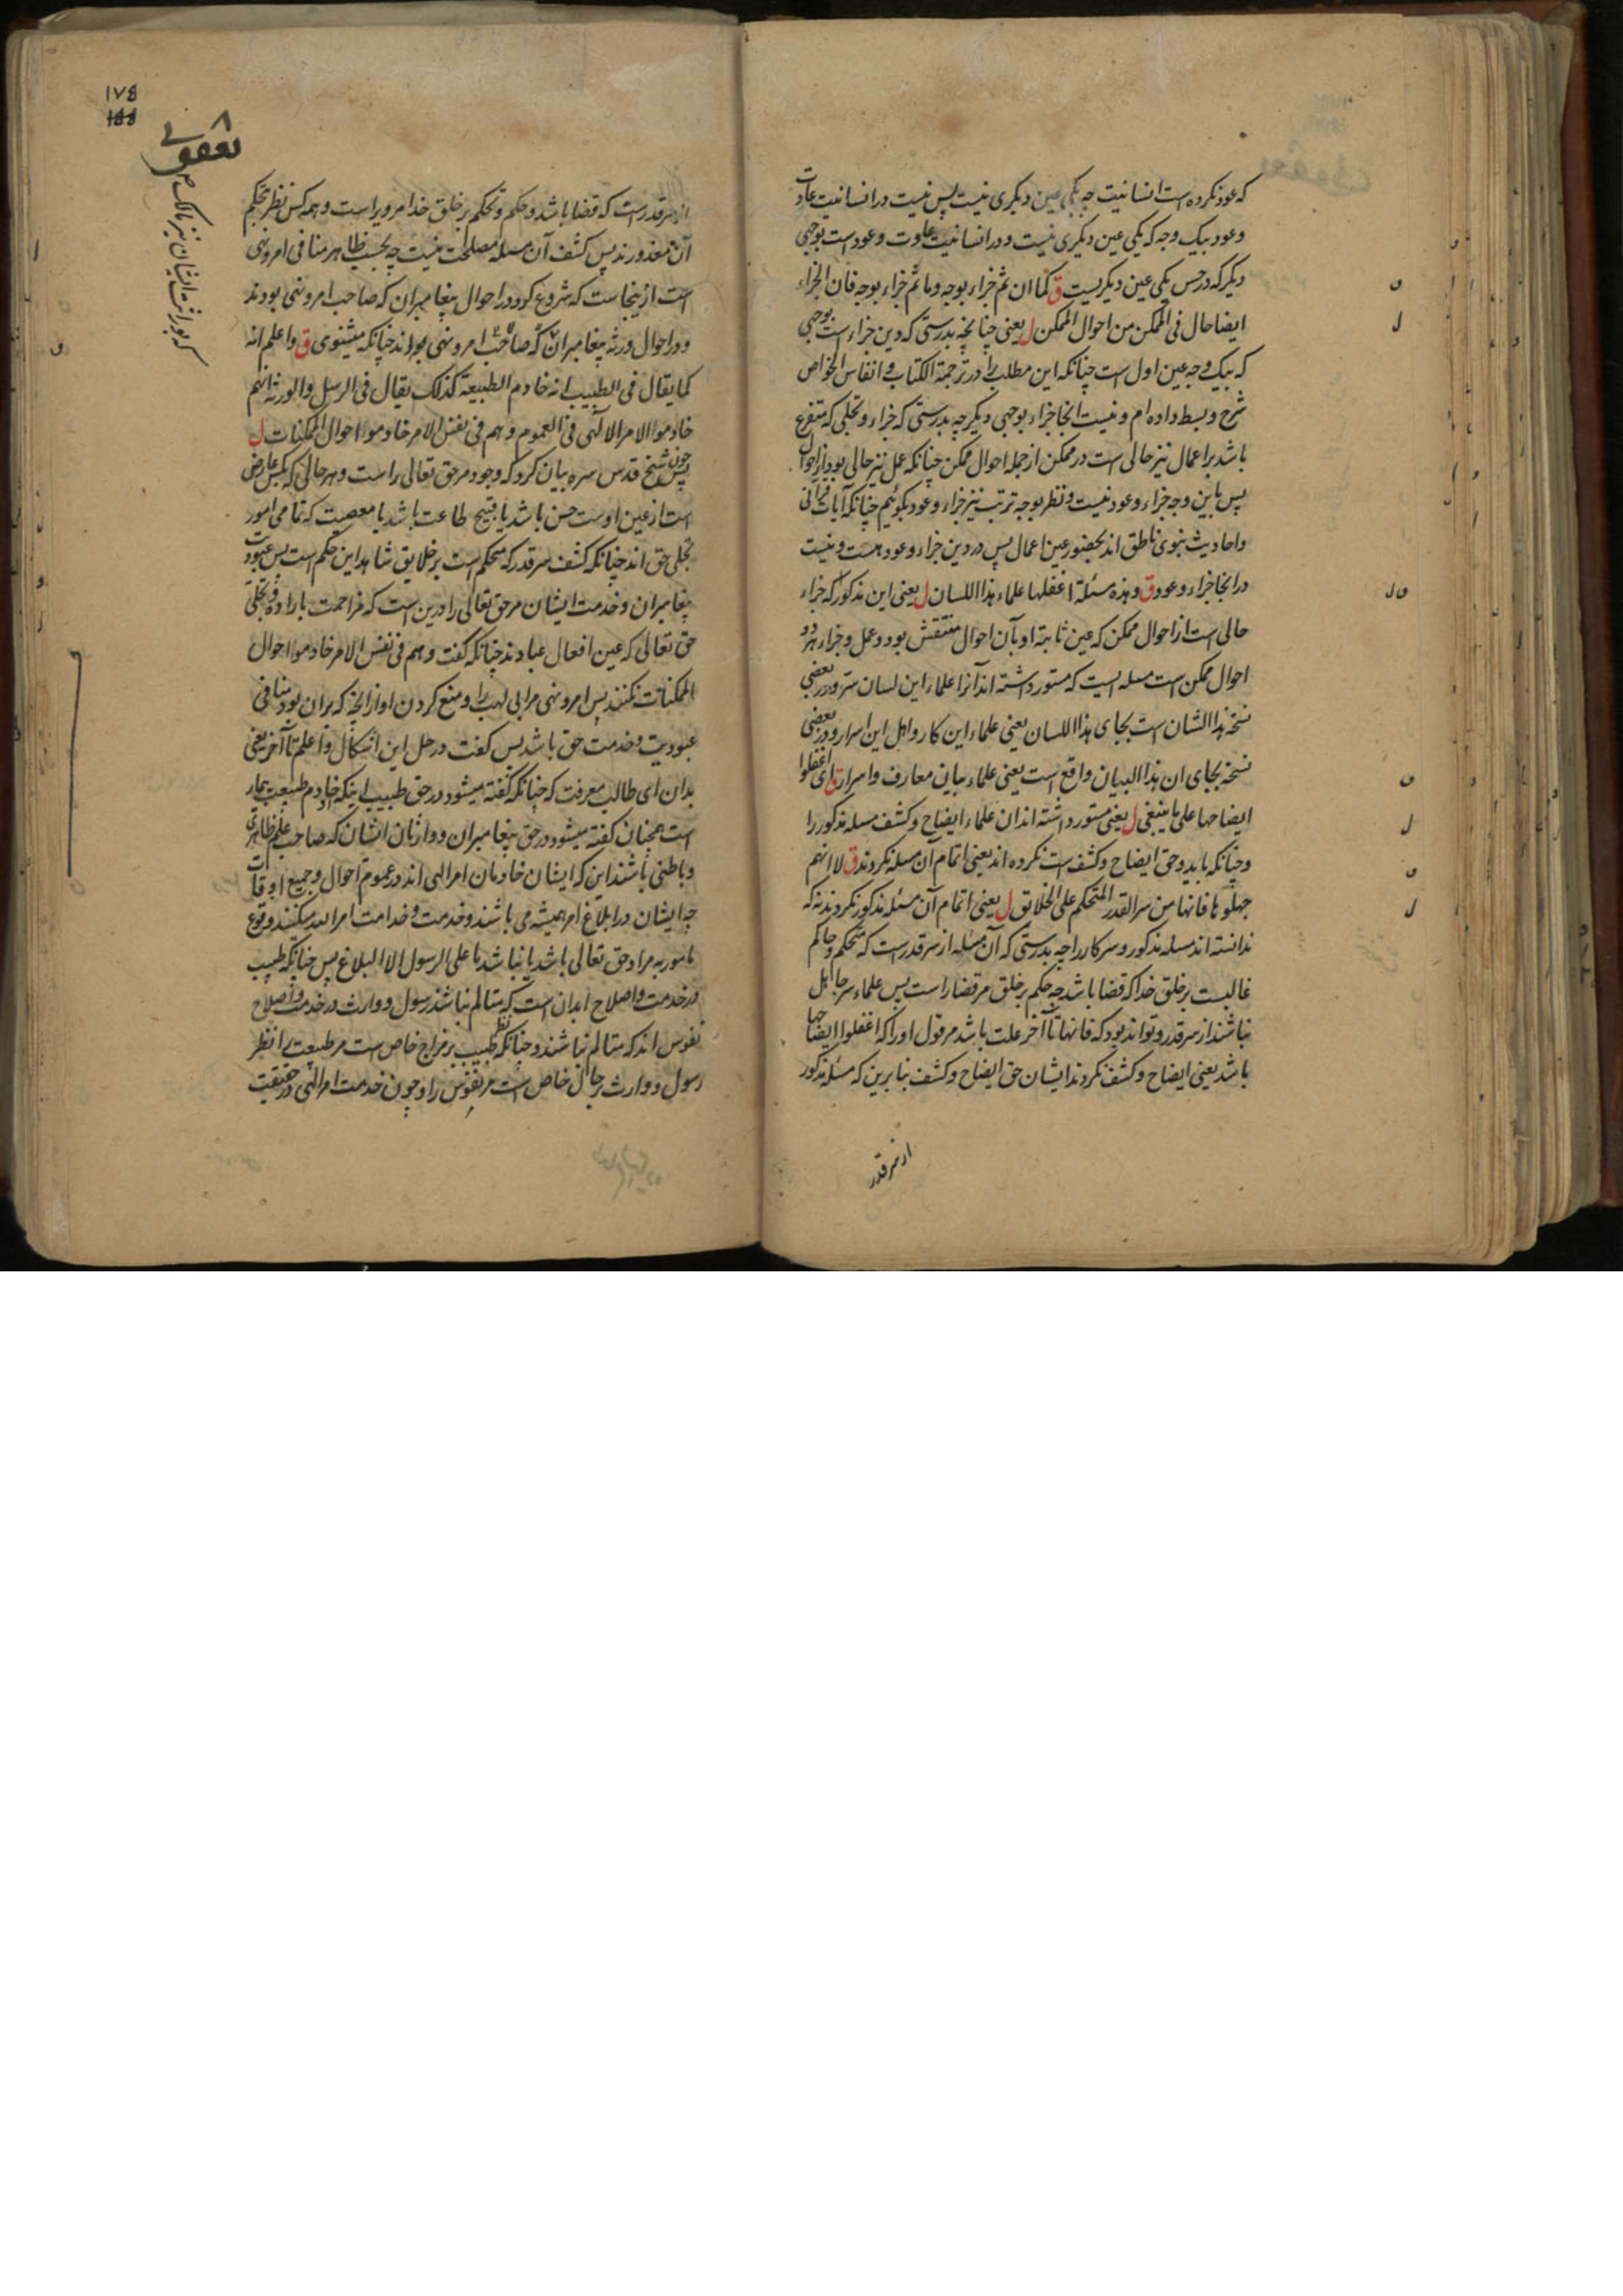 که عود نکرده است انسانیت چه یکی عین دیگری نیست پس نیست در انسانیت عادت
و عود بیک وجه که یکی عین دیگری نیست و در انسانیت عادت و عود است بوجهی
دیگر که در حس یکی عین دیگریست ق کما ان ثم جزاء بوجه و ما ثم جزاء بوجه فان الجزاء
ایضا حال فی الممکن من احوال الممکن ل یعنی چنانچه بدرستی که درین جزاء است بوجهی
که بیک وجه عین اول است چنانکه این مطلب را در ترجمة الکتاب و انفاس الخواص
شرح و بسط داده ام و نیست انجا جزاء بوجهی دیگر چه بدرستی که جزاء و تجلی که متفرع
باشد بر اعمال نیز حالی است در ممکن از جمله احوال ممکن چنانکه عمل نیز حالی بود از احوال
پس باین وجه جزاء و عود نیست و نظر بوجه ترتب نیز جزاء و عود بگوئیم چنانکه آیات قرآنی
و احادیث نبوی ناطق اند بحضور عین اعمال پس در دین جزاء و عود هست و نیست
در انجا جزاء و عود ق و هذه مسئلة اغفلها علماء هذا اللسان ل یعنی این مذکور که جزاء
حالی است از احوال ممکن که عین ثابتة او بآن احوال منتقش بود و عمل و جزاء هر دو
احوال ممکن است مسله ایست که مستور داشته اند آنرا علماء این لسان ستر و در بعضی
نسخه هذا الشان است بجای هذا اللسان یعنی علماء این کار و اهل این اسرار و در بعضی
نسخه بجای ان هذا البیان واقع است یعنی علماء بیان معارف و اسرار ق ای اغفلوا
ایضاحها علی ما ینبغی ل یعنی مستور داشته اند ان علماء ایضاح و کشف مسله مذکور را
و چنانکه باید و حق ایضاح و کشف است نکرده اند یعنی اتمام آن مسله نکردند ق لا انهم
جهلوها فانها من سر القدر المتحکم علی الخلائق ل یعنی اتمام آن مسئله مذکور نکردند نه که
ندانسته اند مسله مذکور و سر کار را چه بدرستی که آن مسله از سر قدر است که متحکم و حاکم
غالبست بر خلق خدا که قضا باشد چه حکم بر خلق مر قضا راست پس علماء سر جاهل
نباشند از سر قدر و تواند بود که فانها تا آخر علت باشد مر قول او را که اغفلوا ایضاحها
باشد یعنی ایضاح و کشف نکردند ایشان حق ایضاح و کشف بنا برین که مسئله مذکور
از سر قدر
۱۷۵
یعقوبی
از سر قدر است که قضا باشد و حکم و تحکم بر خلق خدا مر ویراست و همه کس نظر بحکم
آن معذورند پس کشف آن مسله مصلحت نیست چه بحسب ظاهر منافی امر و نهی
است ازینجاست که شروع کرد در احوال پیغامبران که صاحب امر و نهی بودند
و در احوال ورثه پیغامبران که صاحب امر و نهی اند چنانکه میشنوی ق و اعلم انه
کما یقال فی الطبیب انه خادم الطبیعة کذلک یقال فی الرسل و الورثة انهم
خادموا الامر الالهی فی العموم و هم فی نفس الامر خادموا احوال الممکنات ل
چون شیخ قدس سره بیان کرد که وجود مر حق تعالی راست و هر حالی که بکس عارض
است از عین اوست حسن باشد یا قبیح طاعت باشد یا معصیت که تمامی امور
تجلی حق اند چنانکه کشف سر قدر که متحکم است بر خلایق شاهد این حکم است پس عبودیت
پیغامبران و خدمت ایشان مر حق تعالی را درین است که مزاحمت بارادة و تجلی
حق تعالی که عین افعال عبادند چنانکه گفت و هم فی نفس الامر خادموا احوال
الممکنات نکنند پس امر و نهی مر ابی لهب را و منع کردن او از انچه که بران بود منافی
عبودیت و خدمت حق باشد پس گفت در حل این اشکال و اعلم تا آخر یعنی
بدان ای طالب معرفت که چنانکه گفته میشود در حق طبیب اینکه او خادم طبیعت بیمار
است همچنان گفته میشود در حق پیغامبران و وارثان ایشان که صاحب علم ظاهری
و باطنی باشند این که ایشان خادمان امر الهی اند در عموم احوال و جمیع اوقات
چه ایشان در ابلاغ امر همیشه می باشند و خدمت و خدامت امر الله میکنند وقوع
مامور به مراد حق تعالی باشد یا نباشد ما علی الرسول الا البلاغ پس چنانکه طبیب
در خدمت و اصلاح ابدان است که متالم نباشد رسول و وارث در خدمت و اصلاح
نفوس اند که متالم نباشند و چنانکه نظر طبیب بر مزاج خاص است مر طبیعت را نظر
رسول و وارث بر حال خاص است مر نفوس را و چون خدمت امر الهی در حقیقت